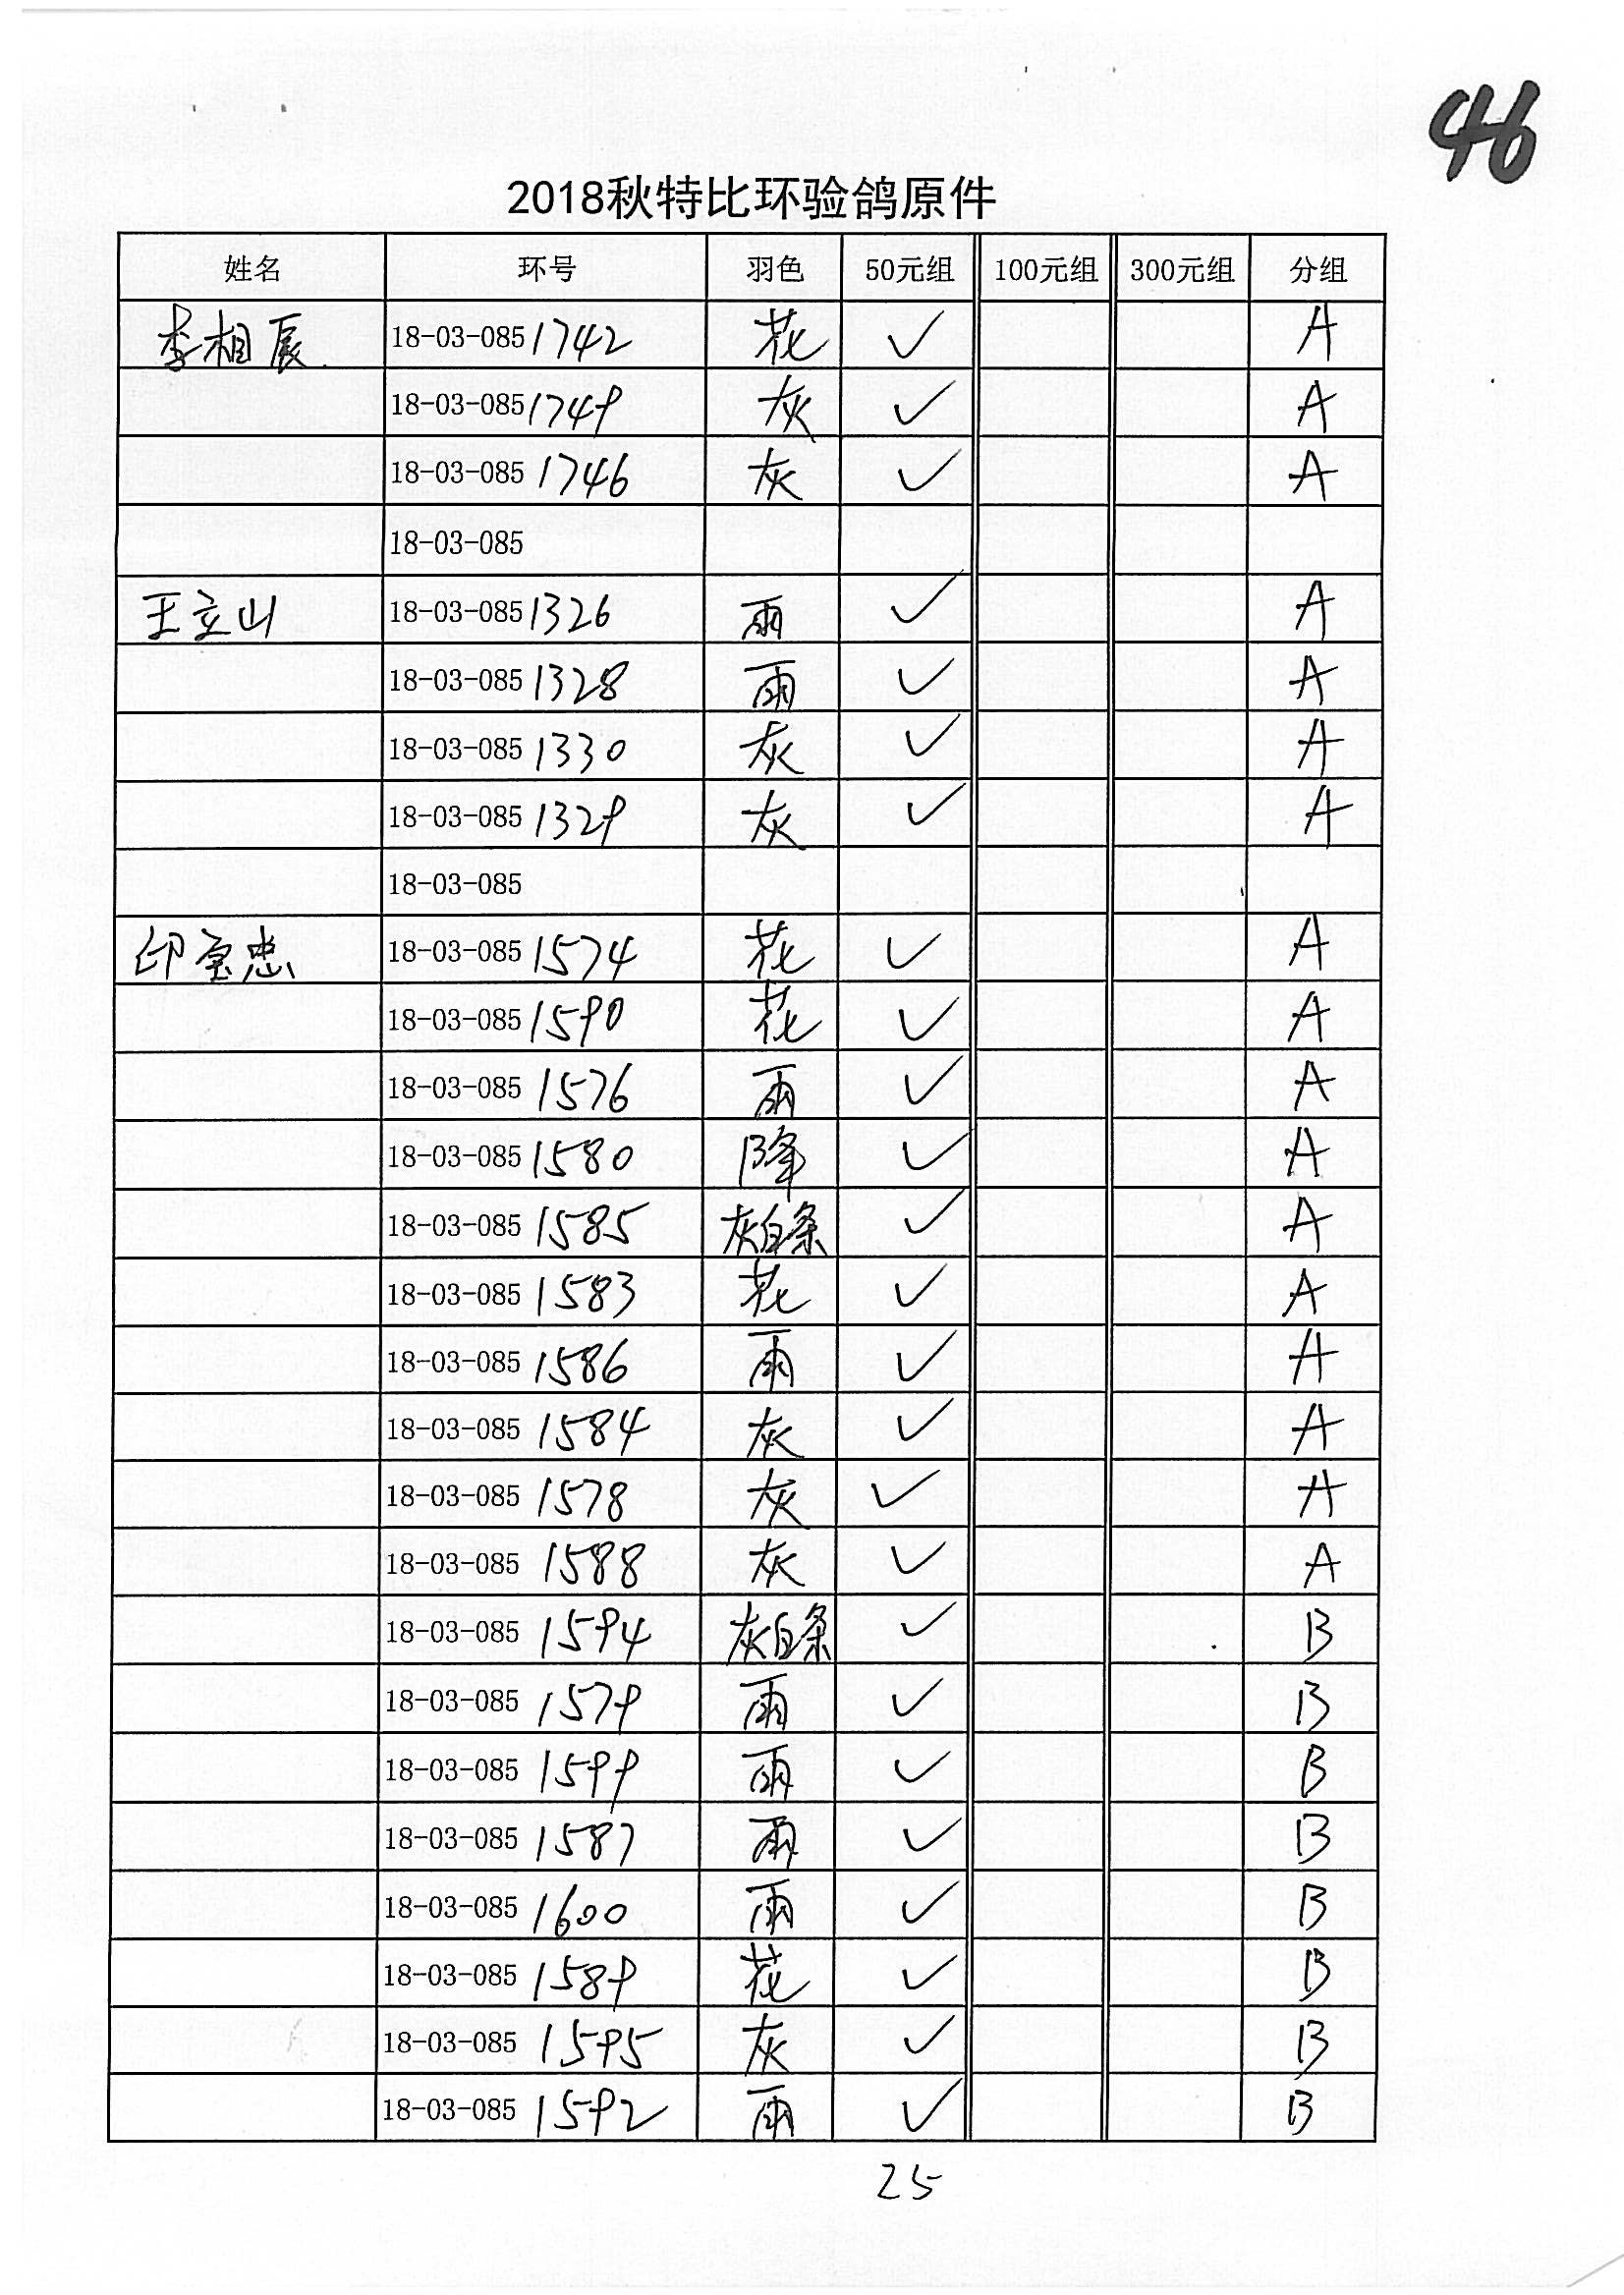 46
2018秋特比环验鸽原件
姓名 环号 羽色 50元组 100元组 300元组 分组
李相辰 18-03-0851742 花 ✓ A
18-03-0851749 灰 ✓ A
18-03-0851746 灰 ✓ A
18-03-085
王立山 18-03-0851326 雨 ✓ A
18-03-0851328 雨 ✓ A
18-03-0851330 灰 ✓ A
18-03-0851329 灰 ✓ A
18-03-085
印宝忠 18-03-0851574 花 ✓ A
18-03-0851590 花 ✓ A
18-03-0851576 雨 ✓ A
18-03-0851580 降 ✓ A
18-03-0851585 灰白条 ✓ A
18-03-0851583 花 ✓ A
18-03-0851586 雨 ✓ A
18-03-0851584 灰 ✓ A
18-03-0851578 灰 ✓ A
18-03-0851588 灰 ✓ A
18-03-0851594 灰白条 ✓ B
18-03-0851579 雨 ✓ B
18-03-0851599 雨 ✓ B
18-03-0851587 雨 ✓ B
18-03-0851600 雨 ✓ B
18-03-0851589 花 ✓ B
18-03-0851595 灰 ✓ B
18-03-0851592 雨 ✓ B
25